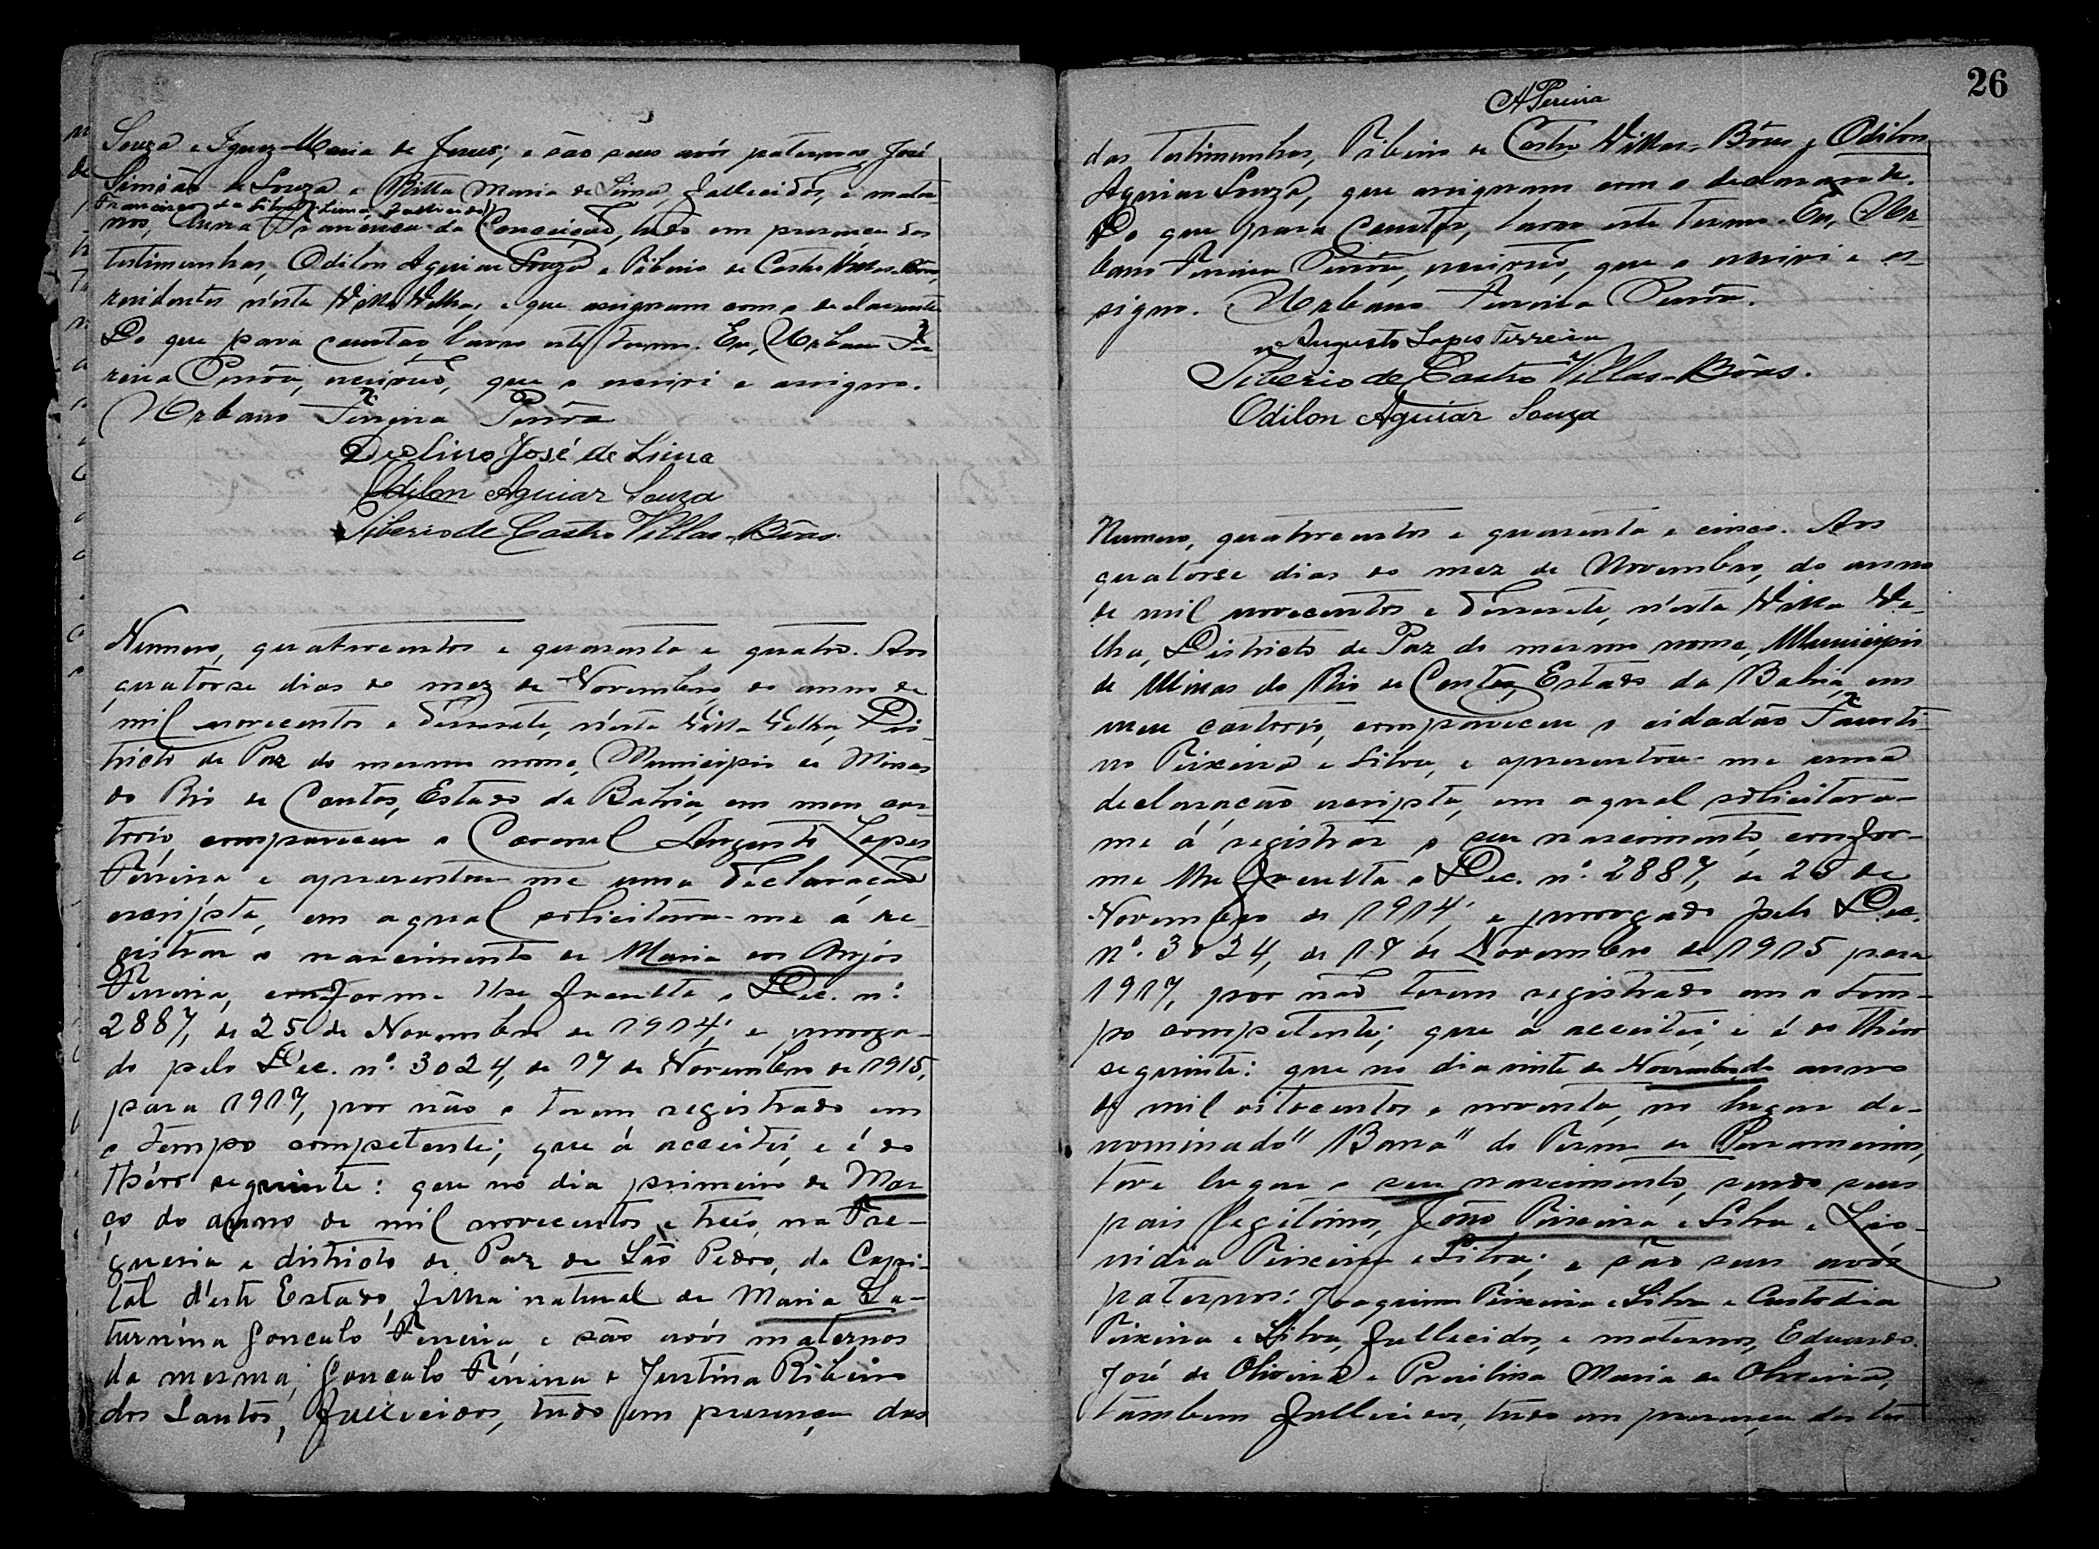 Souza e Ignez Maria de Jesus; e são seus avós paternos, José
Simeão de Souza e Ritta Maria de Lima, fallecidos, e mater-
Francisco da Silva Lima, fallecido
nos, Anna Francisca da Conceição, tudo em presença das
testimunhas, Odilon Aguiar Souza e Tiberio de Castro Villas-Bôas,
residentes n'esta Villa Velha, e que assignam com o declarante.
Do que para constar lavro este termo. Eu, Urbano Fer
reira escrivão, que o escrevi e assigno.
Urbano Ferreira
José de Lima
Odilon Aguiar Souza
Tiberio de Castro Villas-Bôas.
Numero, quatrocentos e quarenta e quatro. Aos
quatorse dias do mez de Novembro, do anno de
mil novecentos e desesete, n'esta Villa Velha, Dis-
tricto de Paz do mesmo nome, Municipio de Minas
do Rio de Contas, Estado da Bahia, em meu car-
torio, compareceu o Coronel Augusto Lopes
Ferreira e apresentou-me uma declaração
escripta, em a qual solicitava-me á re-
gistrar o nascimento de Maria dos Anjos
Ferreira, conforme lhe faculta o Dec. nº.
2887, de 25 de Novembro de 1914, e proroga-
do pelo Dec. nº. 3024, de 17 de Novembro de 1915,
para 1917, por não o terem registrado em
o tempo competente; que á acceitei, e é do
théor seguinte: que no dia primeiro de Mar
ço do anno de mil novecentos e treis, na Fre-
guesia e districto de Paz de São Pedro, da Capi-
tal d'este Estado, filha natural de Maria Sa-
turnina Gonçalo Ferreira, e são avós maternos
da mesma, Gonçalo Ferreira e Justina Ribeiro
dos Santos, fallecidos, tudo em presença das
26
APereira
das testimunhas, Tiberio de Castro Villas-Bôas e Odilon
Aguiar Souza, que assignam com o declarante.
Do que para constar, lavro este termo. Eu, Ur-
bano Ferreira escrivão, que o escrevi e as-
signo. Urbano Ferreira
Augusto Lopes Ferreira
Tiberio de Castro Villas-Bôas.
Odilon Aguiar Souza
Numero, quatrocentos e quarenta e cinco. Aos
quatorse dias do mez de Novembro, do anno
de mil novecentos e desesete, n'esta Villa Ve-
lha, Districto de Paz do mesmo nome, Municipio
de Minas do Rio de Contas, Estado da Bahia, em
meu cartorio, compareceu o cidadão Fausti-
no Teixeira e Silva, e apresentou-me uma
declaração escripta, em a qual solicitava-
me á registrar o seu nascimento, confor-
me lhe faculta o Dec. nº. 2887, de 25 de
Novembro de 1914, e prorogado pelo Dec.
nº. 3024, de 17 de Novembro de 1915 para
1917, por não terem registrado em o tem-
po competente; que á acceitei; e é do théor
seguinte: que no dia vinte de Novembro, do anno
de mil oitocentos e noventa, no lugar de-
nominado "Barra" do Termo de Paramerim,
teve lugar o seu nascimento, sendo seus
pais legitimos, João Teixeira e Silva e Leo-
vidia Teixeira e Silva; e são seus avós
paternos: Joaquim Teixeira e Silva e Custodia
Teixeira e Silva, fallecidos, e maternos, Eduardo
José de Oliveira e Maria de Oliveira,
tambem fallecidos, tudo em presença das tes